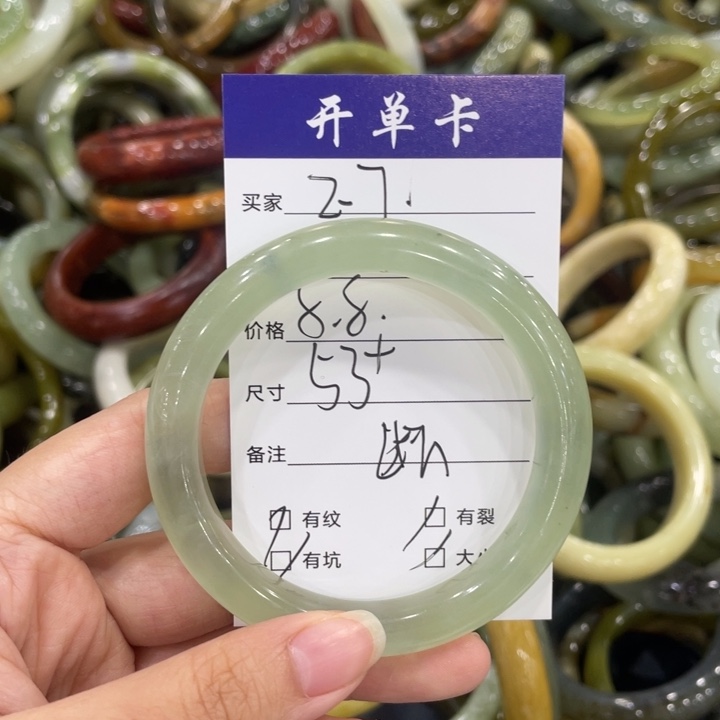 开单卡
买家 2-7.
价格 8.8.
尺寸 53+
备注 断
有纹 有裂
有坑 大